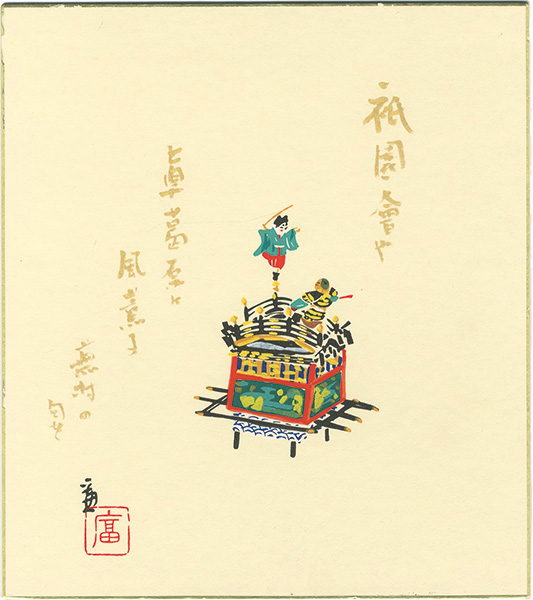 祇園會や
眞葛原に
風薫る
蕪村の
句を
富